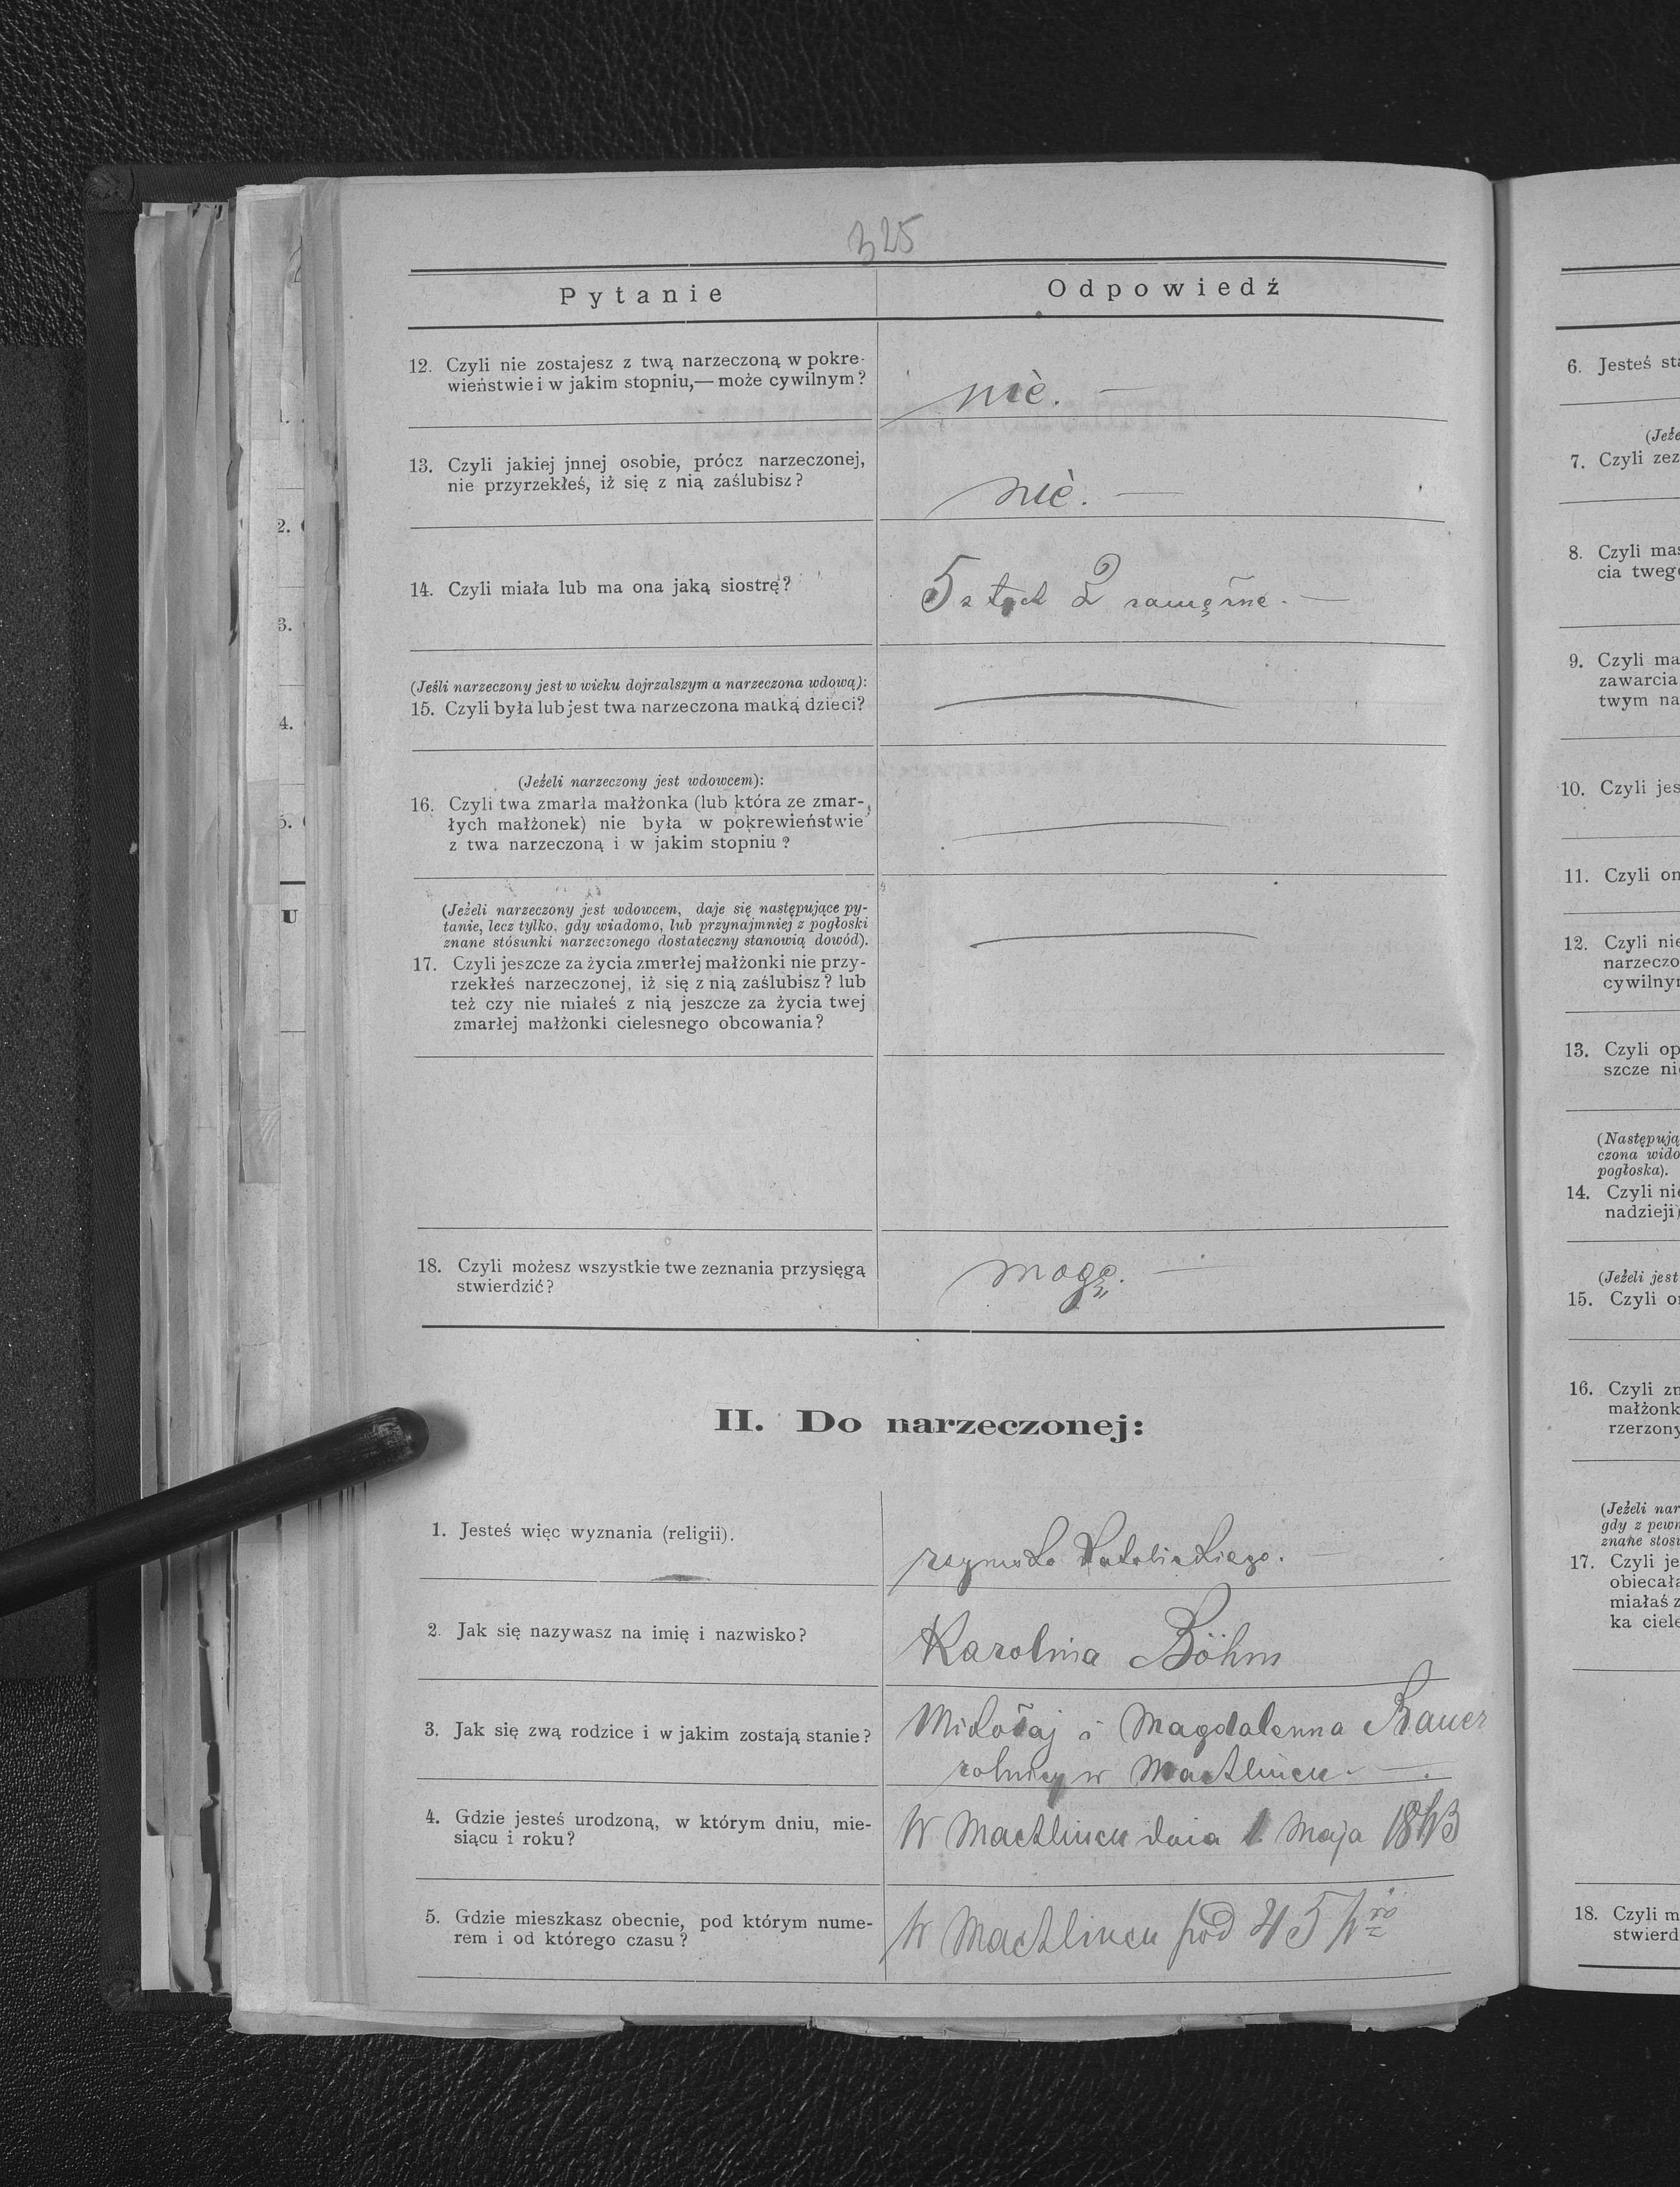 325
Pytanie
Odpowiedź
12. Czyli nie zostajesz z twą narzeczoną w pokre-
wieństwie i w jakim stopniu,— może cywilnym?
nie. —
13. Czyli jakiej jnnej osobie, prócz narzeczonej,
nie przyrzekłeś, iż się z nią zaślubisz?
nie. —
14. Czyli miała lub ma ona jaką siostrę?
5 z tych 2 zamężne. —
(Jeśli narzeczony jest w wieku dojrzalszym a narzeczona wdową):
15. Czyli była lub jest twa narzeczona matką dzieci?
(Jeżeli narzeczony jest wdowcem):
16. Czyli twa zmarła małżonka (lub która ze zmar-
łych małżonek) nie była w pokrewieństwie
z twa narzeczoną i w jakim stopniu?
(Jeżeli narzeczony jest wdowcem, daje się następujące py-
tanie, lecz tylko, gdy wiadomo, lub przynajmniej z pogłoski
znane stósunki narzeczonego dostateczny stanowią dowód).
17. Czyli jeszcze za życia zmerłej małżonki nie przy-
rzekłeś narzeczonej, iż się z nią zaślubisz? lub
też czy nie miałeś z nią jeszcze za życia twej
zmarłej małżonki cielesnego obcowania?
18. Czyli możesz wszystkie twe zeznania przysięgą
stwierdzić?
mogę. —
II. Do narzeczonej:
1. Jesteś więc wyznania (religii).
rzymsko katolickiego. —
2. Jak się nazywasz na imię i nazwisko?
Karolina Böhm
3. Jak się zwą rodzice i w jakim zostają stanie?
Mikołaj i Magdalenna Bauer
rolnicy w Machlincu. —
4. Gdzie jesteś urodzoną, w którym dniu, mie-
siącu i roku?
W Machlincu dnia 1. Maja
5. Gdzie mieszkasz obecnie, pod którym nume-
rem i od którego czasu?
W Machlincu pod 45
6. Jesteś
7. Czyli
8. Czyli
cia
9. Czyli
zawarcia
twym
10. Czyli
11. Czyli
12. Czyli nie
13. Czyli
szcze
pogłoska).
14. Czyli
nadzieji)
(Jeżeli jest
15. Czyli
16. Czyli
(Jeżeli
gdy z
znane
17. Czyli
miałaś z
ka
18. Czyli